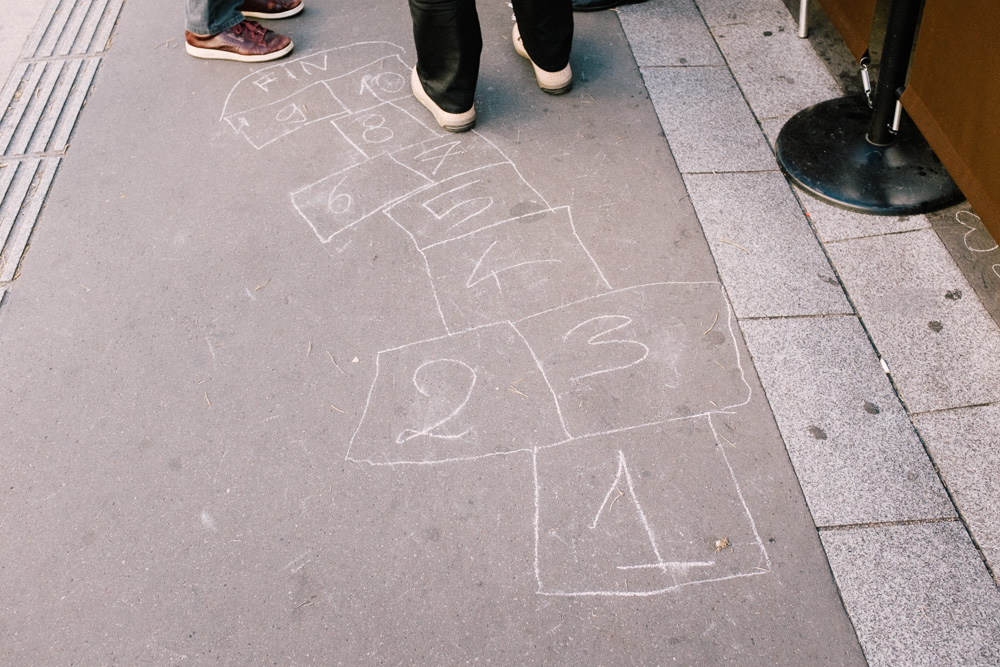 FIN
9 10
8
6 7
5
4
2 3
1